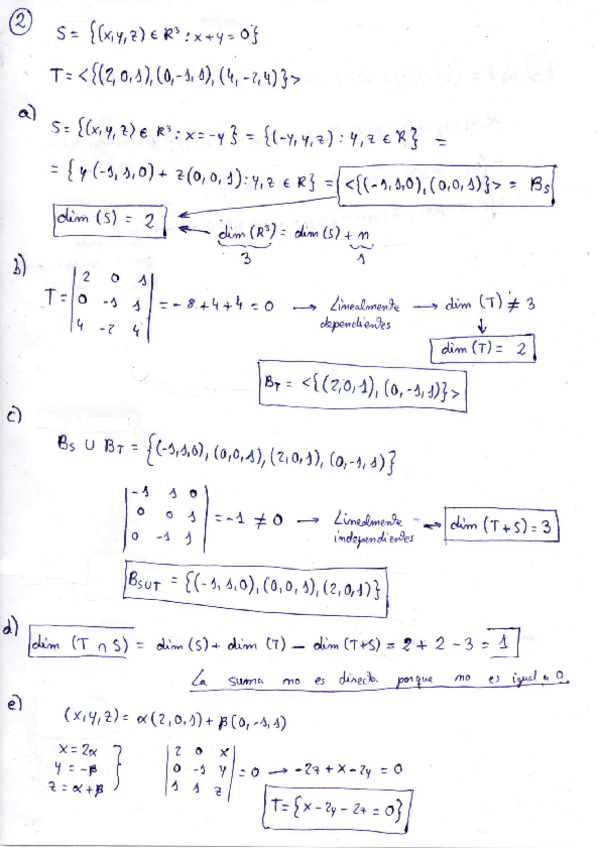 ②
S = {(x,y,z) ∈ R³ : x+y = 0}
T = <{(2,0,1), (0,-1,1), (4,-2,4)}>
a)
S = {(x,y,z) ∈ R³ : x = -y} = {(-y,y,z) : y,z ∈ R} =
= {y(-1,1,0) + z(0,0,1) : y,z ∈ R} = <{(-1,1,0), (0,0,1)}> = B_S
dim (S) = 2
dim (R³) = dim (S) + n
3 1
b)
T = |2 0 1|
|0 -1 1| = -8+4+4 = 0 → Linealmente dependientes → dim (T) ≠ 3
|4 -2 4|
↓
dim (T) = 2
B_T = <{(2,0,1), (0,-1,1)}>
c)
B_S ∪ B_T = {(-1,1,0), (0,0,1), (2,0,1), (0,-1,1)}
|-1 1 0|
|0 0 1| = -1 ≠ 0 → Linealmente independientes → dim (T+S) = 3
|0 -1 1|
B_S∪T = {(-1,1,0), (0,0,1), (2,0,1)}
d) dim (T ∩ S) = dim (S) + dim (T) - dim (T+S) = 2+2-3 = 1
La suma no es directa porque no es igual a 0.
e)
(x,y,z) = α(2,0,1) + β(0,-1,1)
x = 2α
y = -β
z = α+β
|2 0 x|
|0 -1 y| = 0 → -2z+x-2y = 0
|1 1 z|
T = {x-2y-2z = 0}